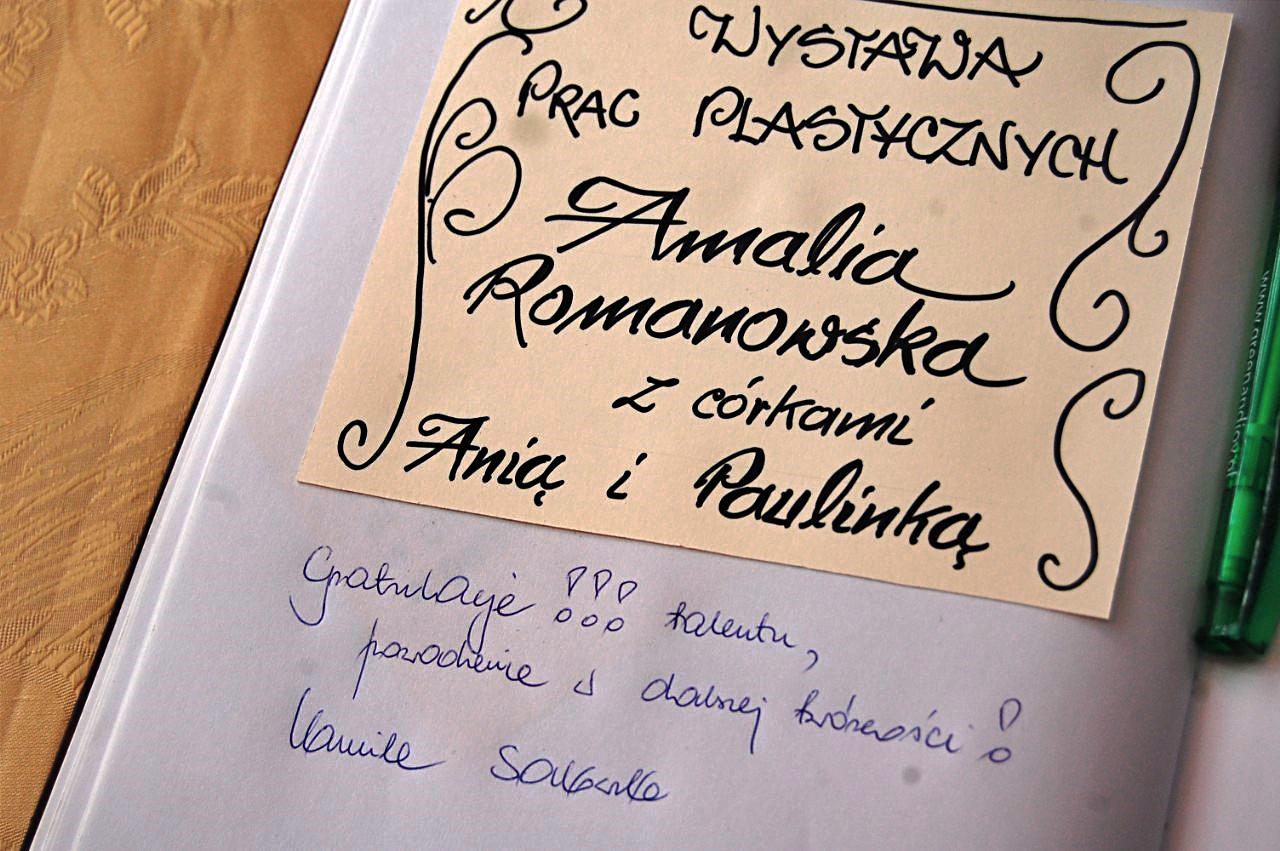 WYSTAWA
PRAC PLASTYCZNYCH
Amalia
Romanowska
z córkami
Anią i Paulinką
Gratulacje !!! talentu,
powodzenia w dalszej twórczości!
Kamila